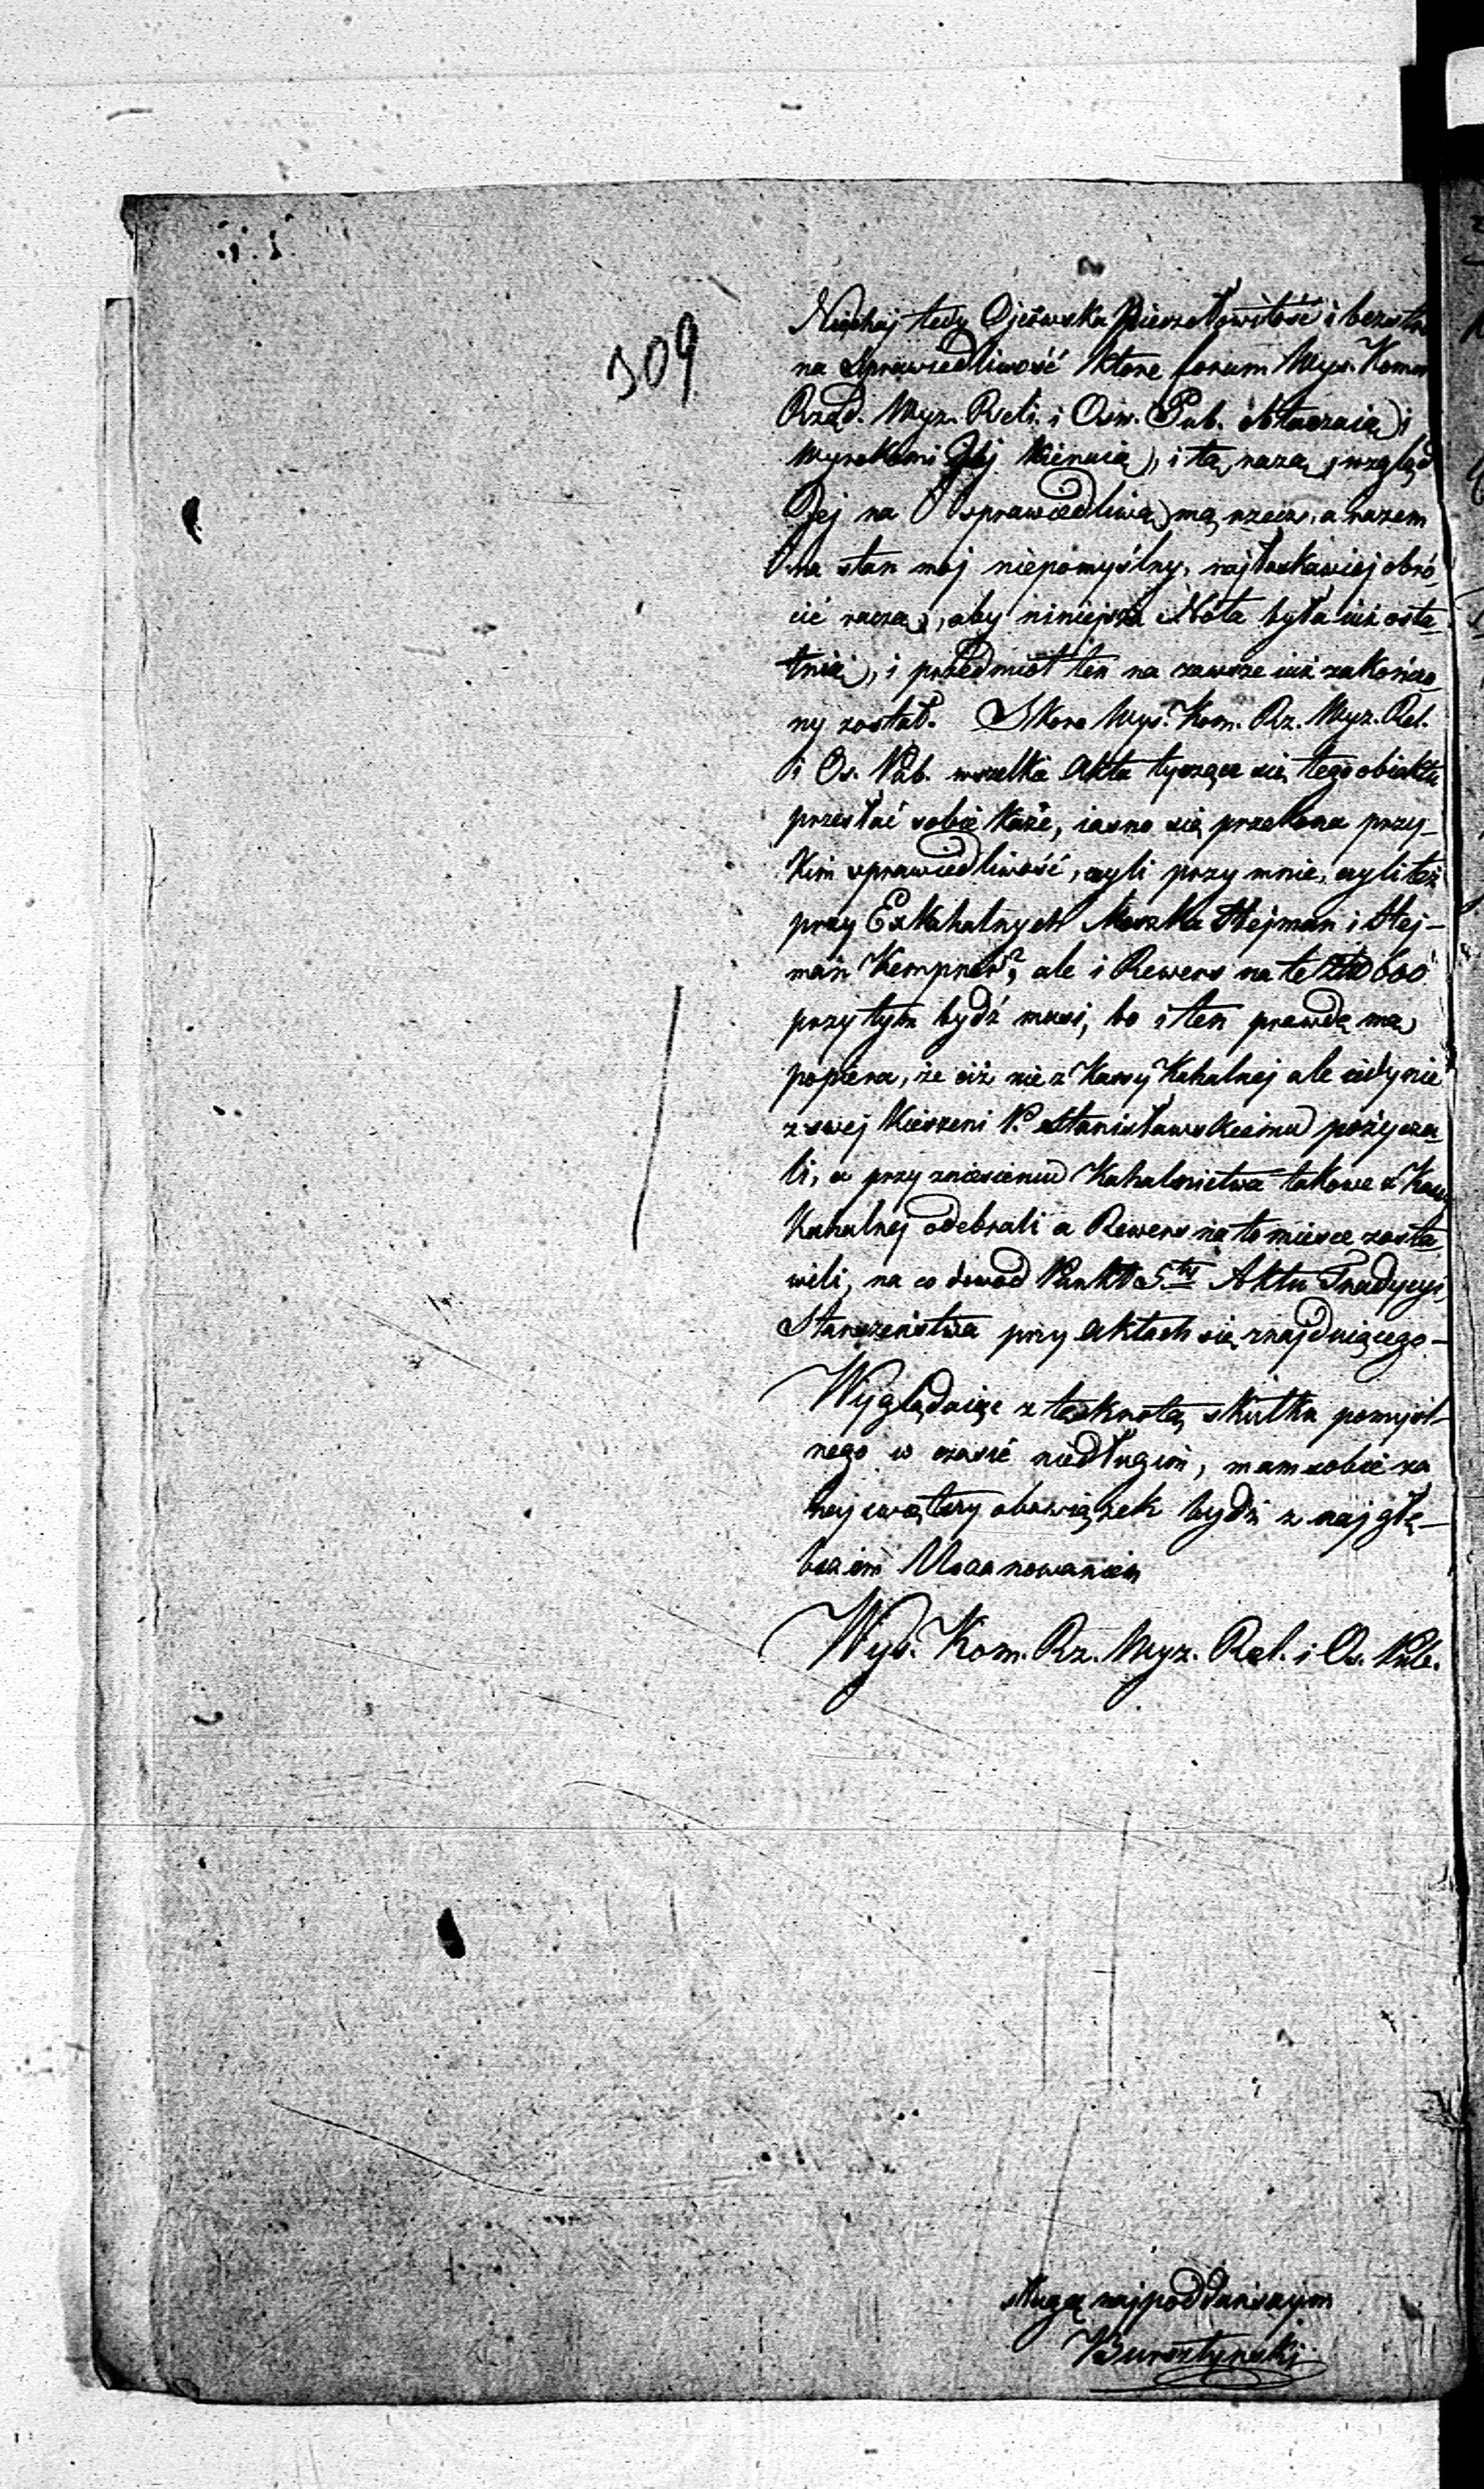 309
Niechaj tedy Ojcowska Pieczołowitość i bezstro
na Sprawiedliwość ktore forum Wys. Komm
Rząd. Wyz. Reli. i Ośw. Pub. otaczaią i
wyrokami Jej kieruią, i tą razą, wzgląd
Jej na sprawiedliwą mą rzecz, a razem
na stan moj niepomyślny, najłaskawiej obró
cić raczą, aby niniejsza Nota była iuż osta
tnią, i przedmiot ten na zawsze iuż zakończo
ny został. Skoro Wys. Kom. Rz. Wyz. Rel.
i Os. Pub. wszelkie Akta tyczące się tego obiektu
przesłać sobie każe, iasno się przekona przy
kim sprawiedliwość, czyli przy mnie, czyli też
przy Exkahalnych Moszka Hejman i Hej-
man Kempner? ale i Rewers na te 600
przytym bydź musi, bo i ten prawdę mą
popiera, że ciż nie z Kassy Kahalnej ale iedynie
z swej kieszeni P. Stanisławskiemu pożycza
li, a przy zniesieniu Kahalnictwa takowe z Kassy
Kahalnej odebrali a Rewers na to miesce zosta
wili, na co dowod Punkt 5ty Aktu Tradycyi
Starszeństwa przy Aktach się znajduiącego-
Wyglądaiąc z tęsknotą skutku pomyśl-
nego w czasie niedługim, mam sobie za
najświętszy obowiązek bydź z najgłę-
bszem Uszanowaniem
Wys. Kom. Rz. Wyz. Rel. i Os. Pub.
sługą najpoddańszym
Bursztyński